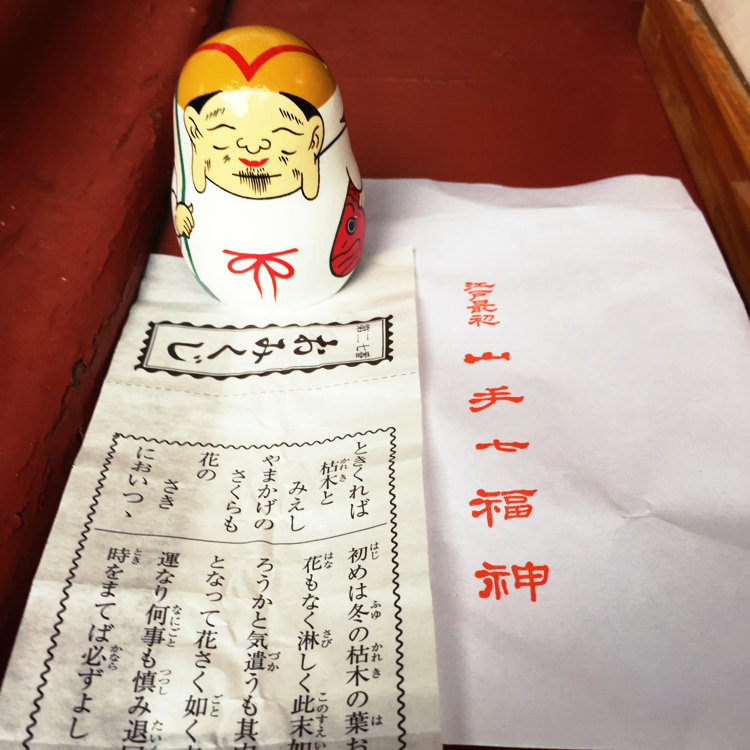 第二七番
おみくじ
ときくれば
枯木と
みえし
やまかげの
さくらも
花の
さき
においつゝ
初めは冬の枯木の葉お
花もなく淋しく此末如
ろうかと気遣うも其
となって花さく如く
運なり何事も慎み退
時をまてば必ずよし
江戸最初
山手七福神